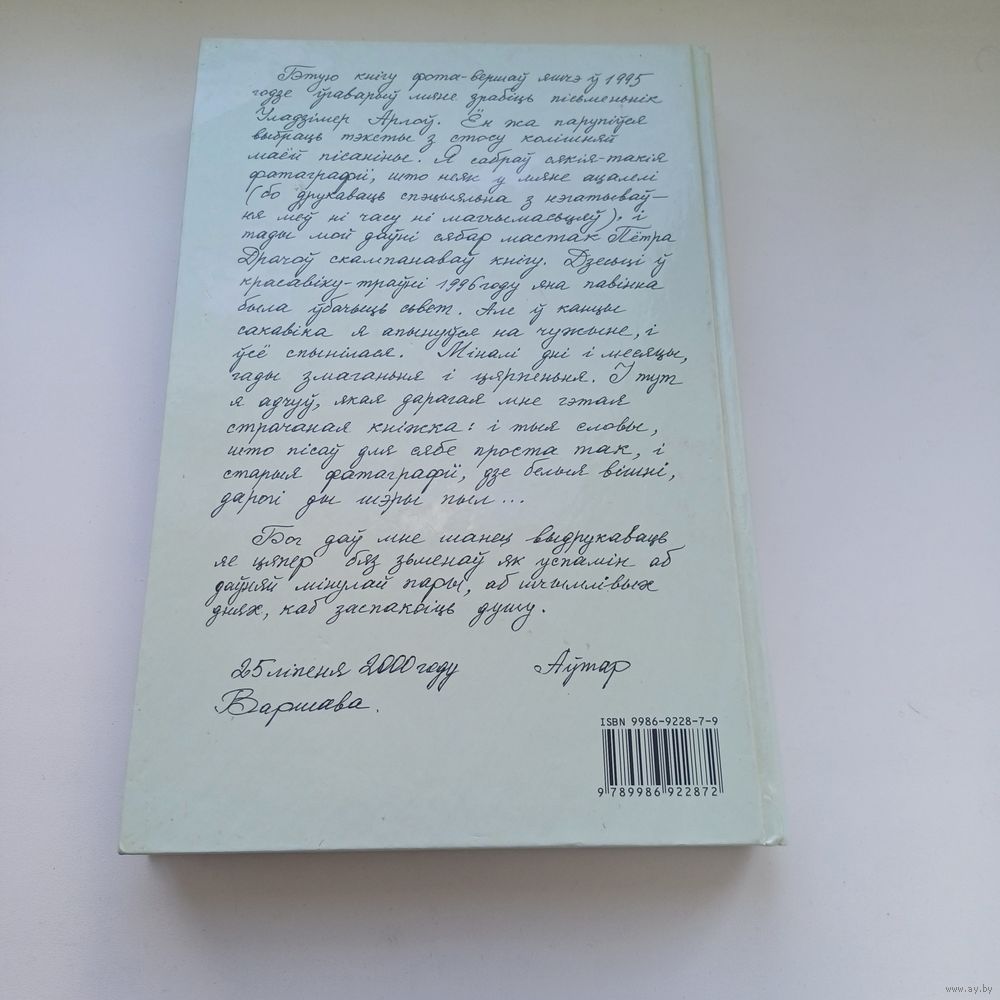 Гэтую кнігу фота-вершаў яшчэ ў 1995
годзе ўгаварыў мяне зрабіць пісьменьнік
Уладзімер Арлоў. Ён жа парупіўся
выбраць тэксты з стосу колішняй
маёй пісаніны. Я сабраў сякія-такія
фатаграфіі, што неяк у мяне ацалелі
(бо друкаваць спэцыяльна з нэгатываў—
ня меў ні часу ні магчымасьцяў). і
тады мой даўні сябар мастак Пётра
Драчоў скампанаваў кнігу. Дзесьці ў
красавіку-траўні 1996 году яна павінна
была ўбачыць сьвет. Але ў канцы
сакавіка я апынуўся на чужыне, і
ўсё спынілася. Міналі дні і месяцы,
гады змаганьня і цярпеньня. І тут
я адчуў, якая дарагая мне гэтая
страчаная кніжка: і тыя словы,
што пісаў для сябе проста так, і
старыя фатаграфіі, дзе белыя вішні,
дарогі ды шэры пыл...
Бог даў мне шанец выдрукаваць
яе цяпер бяз зьменаў як успамін аб
даўняй мінулай пары, аб шчымлівых
днях, каб заспакоіць душу.
25 ліпеня 2000 году Аўтар
Варшава.
ISBN 9986-9228-7-9
9 789986 922872
www.ay.by